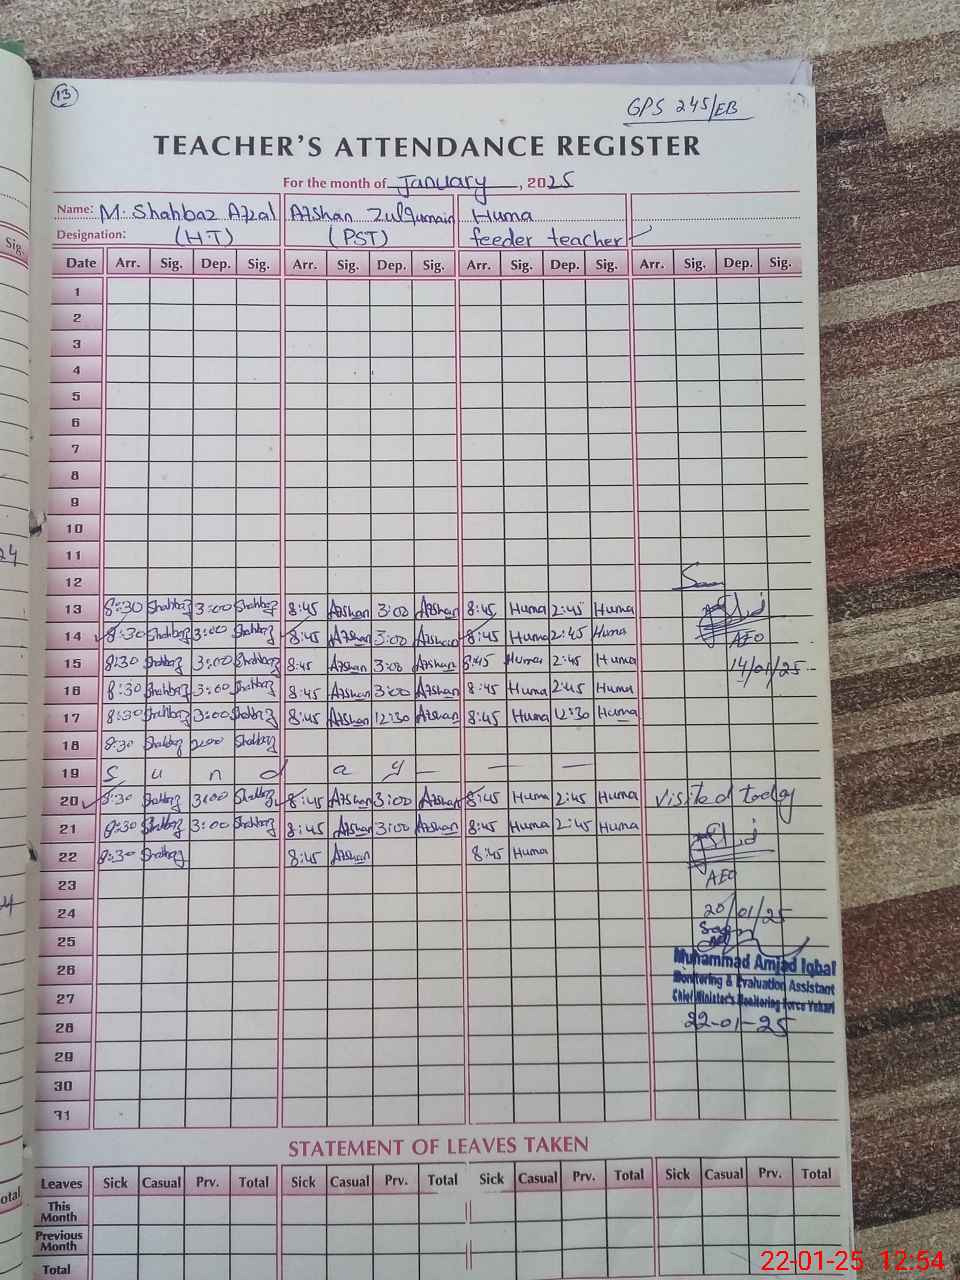 13
GPS 245/EB
TEACHER'S ATTENDANCE REGISTER
For the month of January, 2025
Name: M. Shahbaz Afzal Afshan Zulqurnain Huma
Designation: (H.T) (PST) feeder teacher
Sig.
Date Arr. Sig. Dep. Sig. Arr. Sig. Dep. Sig. Arr. Sig. Dep. Sig. Arr. Sig. Dep. Sig.
1
2
3
4
5
6
7
8
9
10
11
12
13 8:30 Shahbaz 3:00 Shahbaz 8:45 Afshan 3:00 Afshan 8:45 Huma 2:45 Huma
14 8:30 Shahbaz 3:00 Shahbaz 8:45 Afshan 3:00 Afshan 8:45 Huma 2:45 Huma
AEO
15 8:30 Shahbaz 3:00 Shahbaz 8:45 Afshan 3:00 Afshan 8:45 Huma 2:45 Huma
14/01/25
16 8:30 Shahbaz 3:00 Shahbaz 8:45 Afshan 3:00 Afshan 8:45 Huma 2:45 Huma
17 8:30 Shahbaz 3:00 Shahbaz 8:45 Afshan 12:30 Afshan 8:45 Huma 12:30 Huma
18 8:30 Shahbaz 2:00 Shahbaz
19 S u n d a y
20 8:30 Shahbaz 3:00 Shahbaz 8:45 Afshan 3:00 Afshan 8:45 Huma 2:45 Huma visited today
21 8:30 Shahbaz 3:00 Shahbaz 8:45 Afshan 3:00 Afshan 8:45 Huma 2:45 Huma
22 8:30 Shahbaz 8:45 Afshan 8:45 Huma
23
AEO
24
20/01/25
25
26
Muhammad Amjad Iqbal
Monitoring & Evaluation Assistant
27
Chief Minister's Monitoring Force Vehari
28
22-01-25
29
30
31
STATEMENT OF LEAVES TAKEN
Leaves Sick Casual Prv. Total Sick Casual Prv. Total Sick Casual Prv. Total Sick Casual Prv. Total
This
Month
Previous
Month
Total
22-01-25 12:54